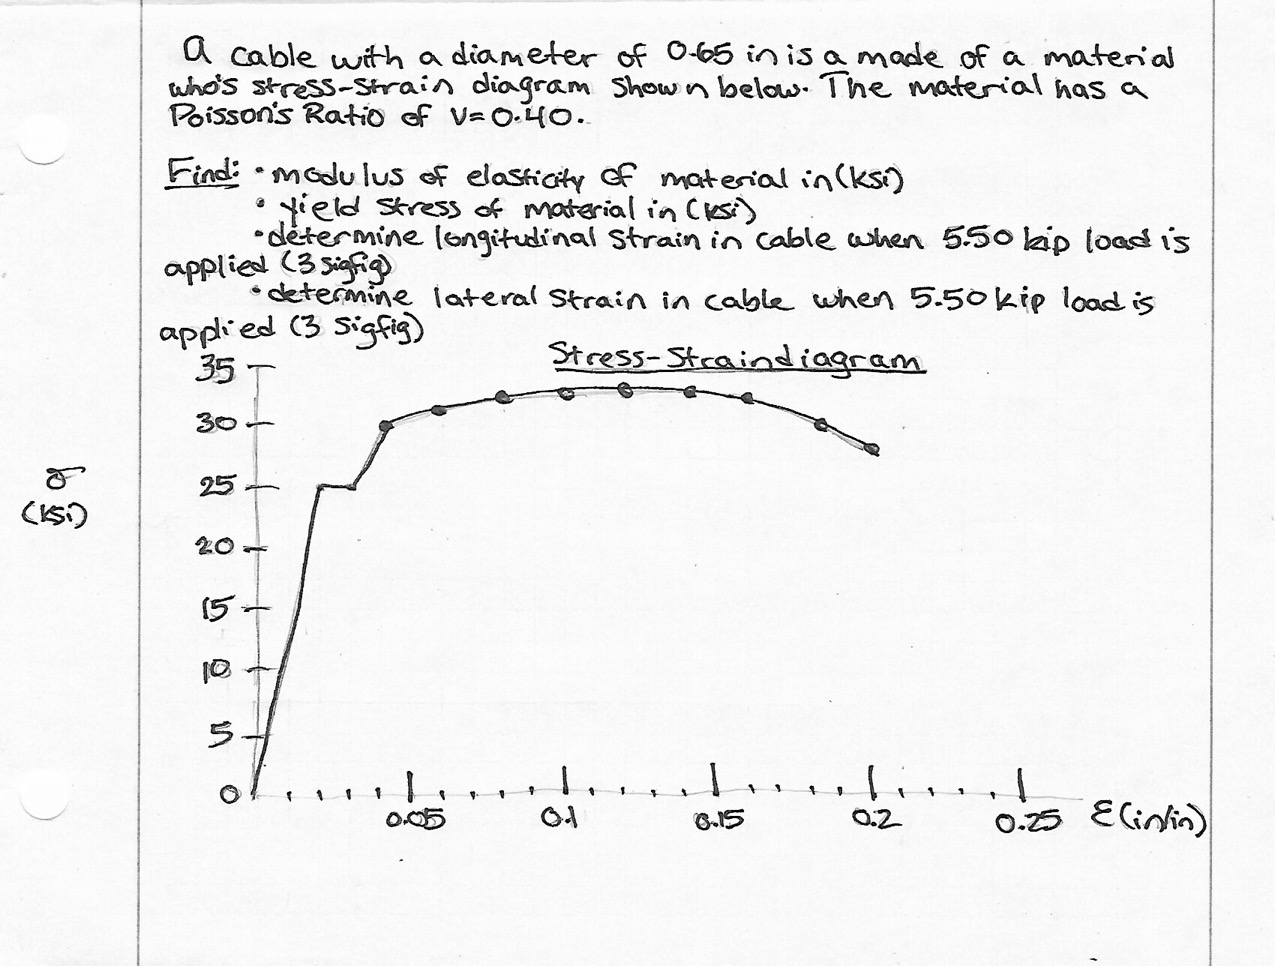 A cable with a diameter of 0.65 in is a made of a material
who's stress-strain diagram shown below. The material has a
Poisson's Ratio of V=0.40.
Find: • modulus of elasticity of material in (ksi)
• yield stress of material in (ksi)
• determine longitudinal strain in cable when 5.50 kip load is
applied (3 sigfig)
• determine lateral strain in cable when 5.50 kip load is
applied (3 sigfig)
Stress-Strain diagram
35
30
25
20
15
10
5
0
σ
(ksi)
0.05 0.1 0.15 0.2 0.25 ε (in/in)